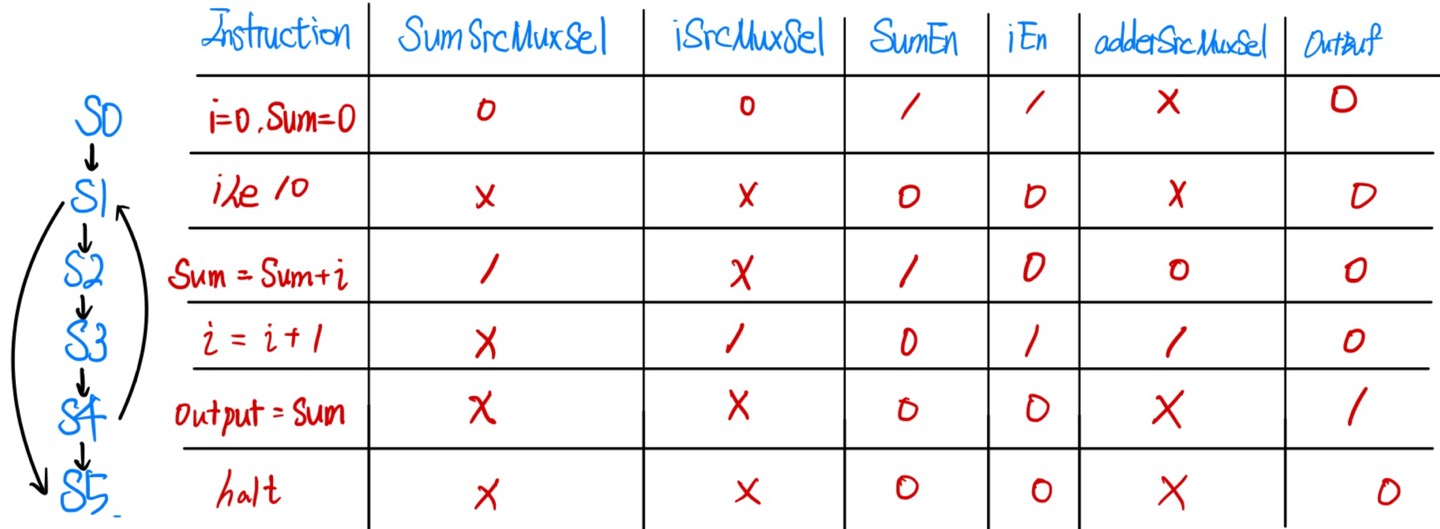 Instruction SumSrcMuxSel iSrcMuxSel SumEn iEn adderSrcMuxSel OutBuf
S0 i=0, Sum=0 0 0 1 1 X 0
S1 ile 10 X X 0 0 X 0
S2 Sum = Sum+i 1 X 1 0 0 0
S3 i = i+1 X 1 0 1 1 0
S4 Output = Sum X X 0 0 X 1
S5 halt X X 0 0 X 0